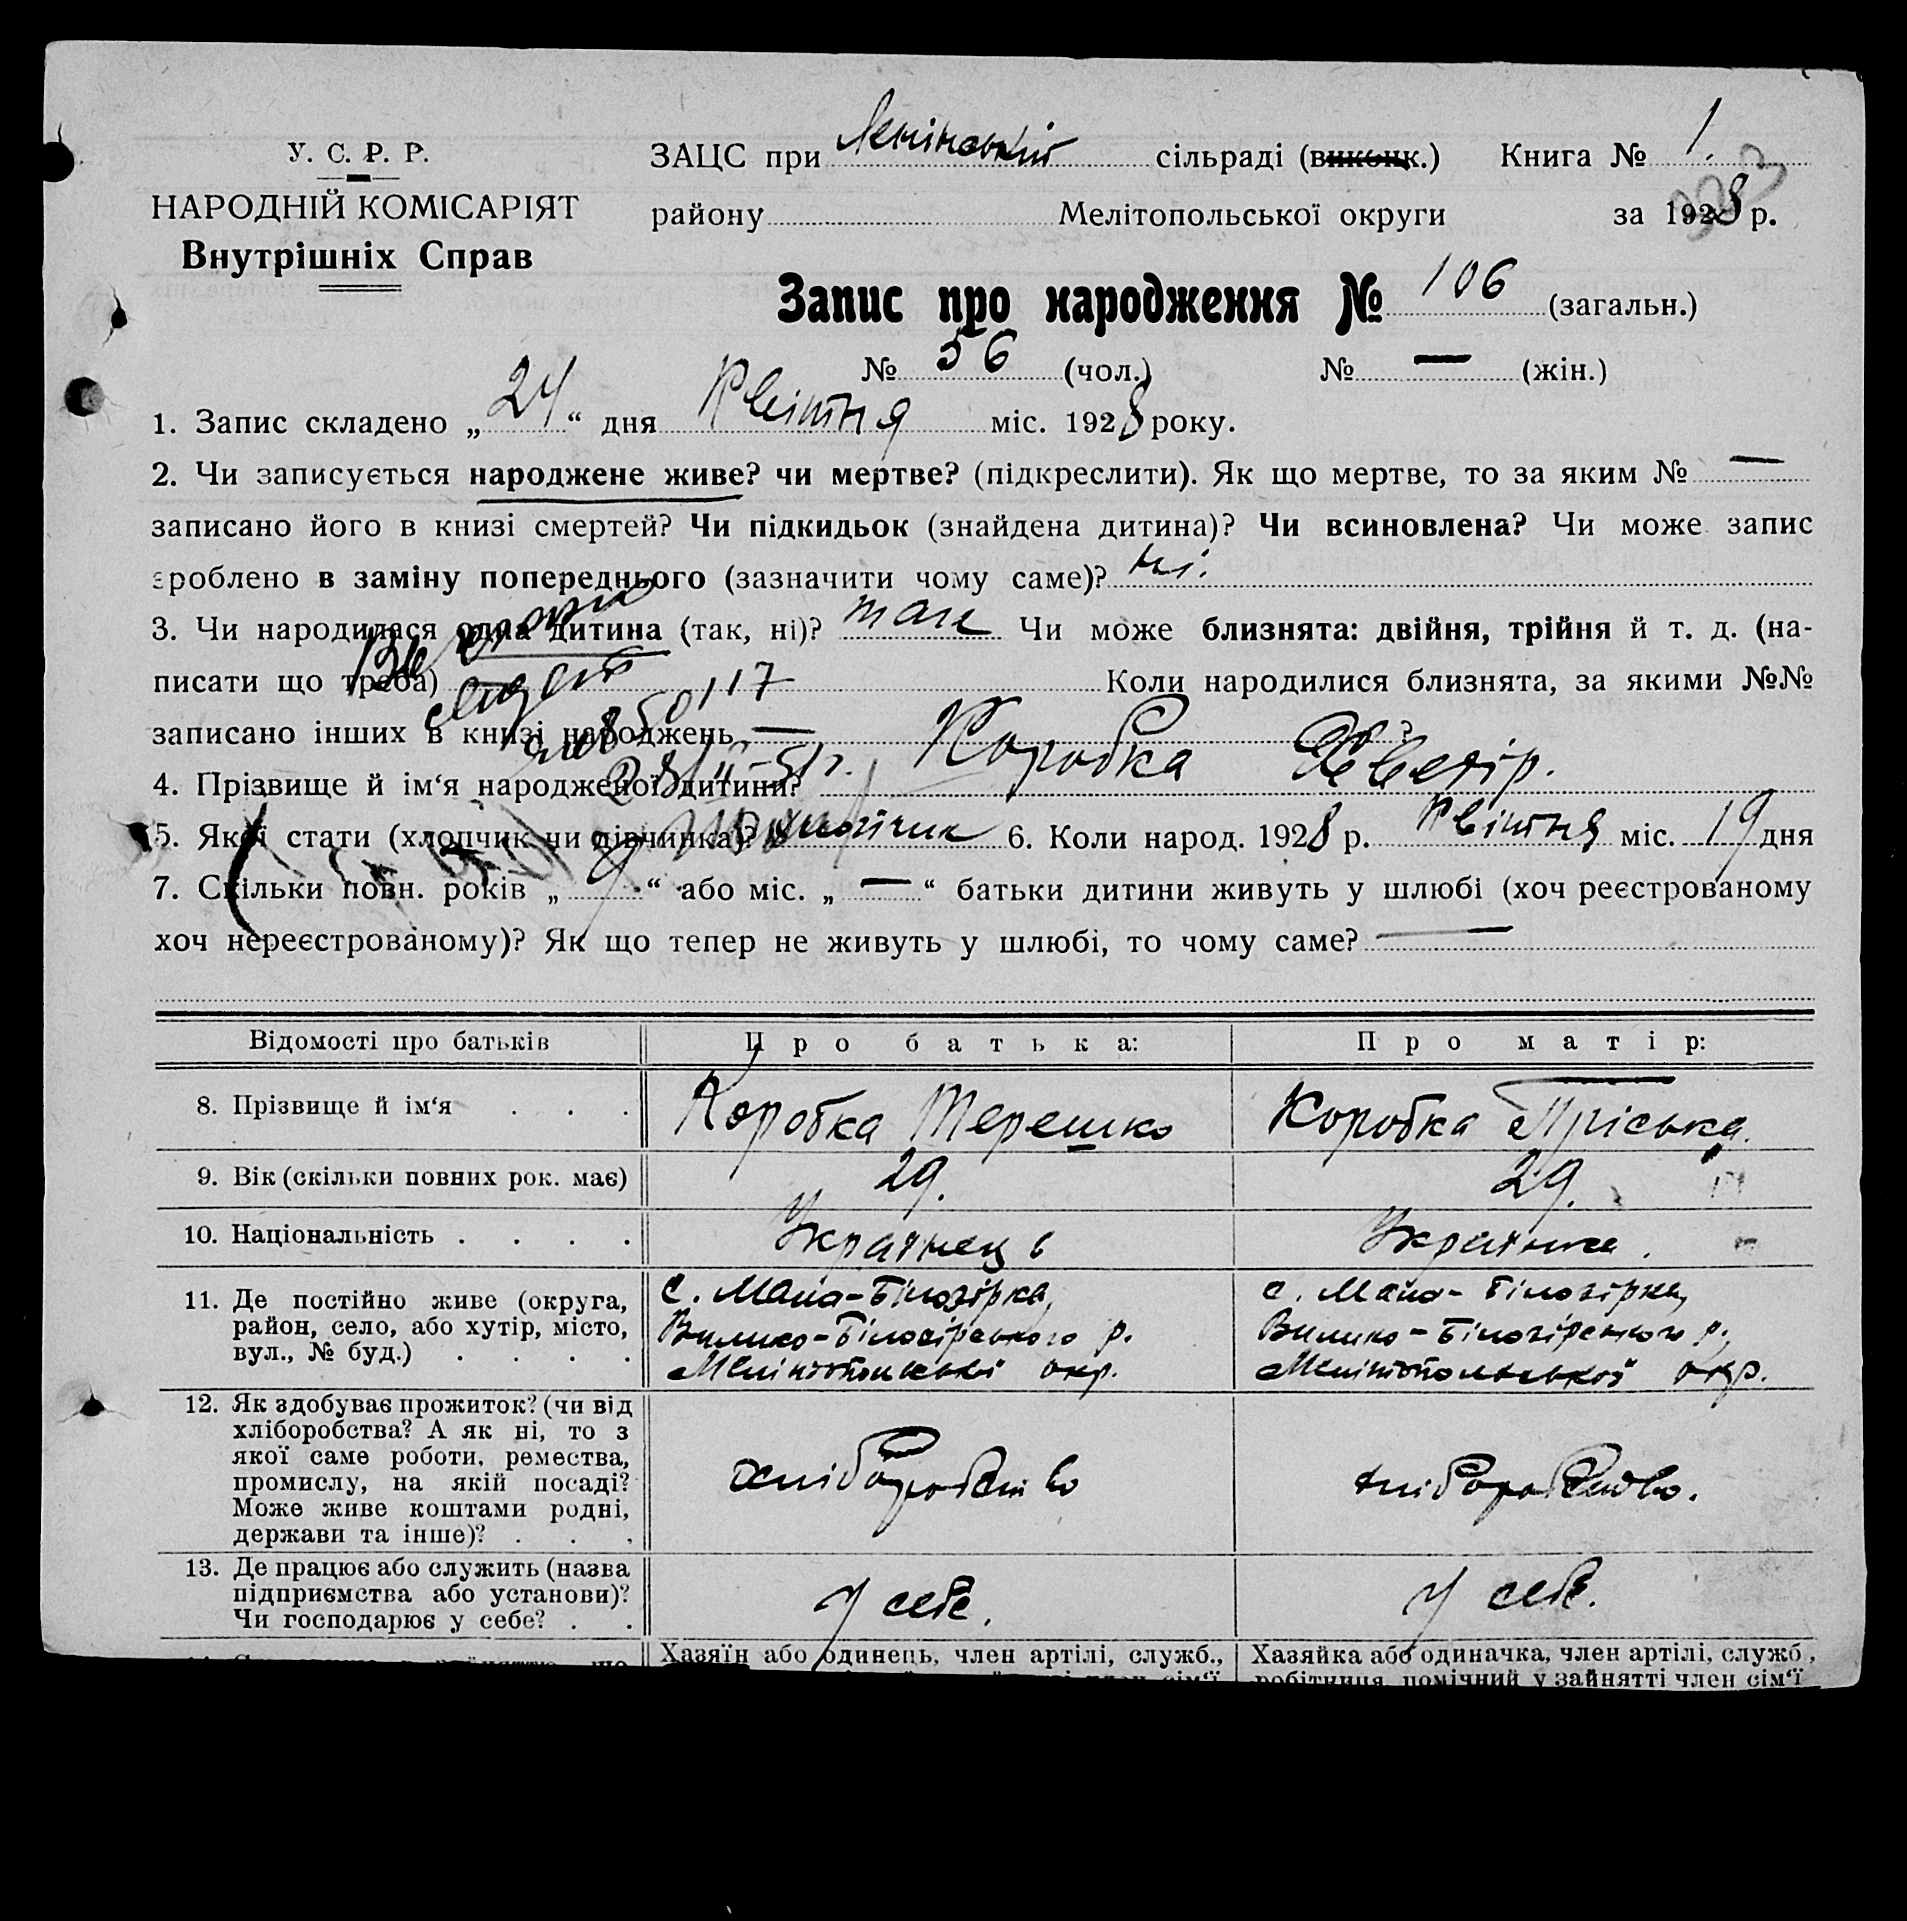 У. С. Р. Р.
НАРОДНІЙ КОМІСАРІЯТ
Внутрішніх Справ
ЗАЦС при Ленінській сільраді (виконк.) Книга № 1.
району Мелітопольської округи за 1928 р.
Запис про народження № 106 (загальн.)
№ 56 (чол.) № — (жін.)
1. Запис складено „ 24 “ дня Квітня міс. 1928 року.
2. Чи записується народжене живе? чи мертве? (підкреслити). Як що мертве, то за яким № —
записано його в книзі смертей? Чи підкидьок (знайдена дитина)? Чи всиновлена? Чи може запис
зроблено в заміну попереднього (зазначити чому саме)? ні.
3. Чи народилася одна дитина (так, ні)? так Чи може близнята: двійня, трійня й т. д. (на-
писати що треба) Коли народилися близнята, за якими №№
записано інших в книзі народжень —
4. Прізвище й ім‘я народженої дитини? Коробка
5. Якої стати (хлопчик чи дівчинка)? хлопчик 6. Коли народ. 1928 р. Квітня міс. 19 дня
7. Скільки повн. років „ 9 “ або міс. „ — “ батьки дитини живуть у шлюбі (хоч реєстрованому
хоч нереєстрованому)? Як що тепер не живуть у шлюбі, то чому саме? —
Відомості про батьків Про батька: Про матір:
8. Прізвище й ім‘я . . . Коробка Терешко Коробка Пріська.
9. Вік (скільки повних рок. має) 29. 29.
10. Національність . . . . Українець Українка.
11. Де постійно живе (округа,
район, село, або хутір, місто,
вул., № буд.) . . . .
с. Мала-Білозірка,
Велико-Білозірського р.
Мелітопольської окр.
с. Мала-Білозірка,
Велико-Білозірського р.
Мелітопольської окр.
12. Як здобуває прожиток? (чи від
хліборобства? А як ні, то з
якої саме роботи, ремества,
промислу, на якій посаді?
Може живе коштами родні,
держави та інше)? . . .
хліборобство
хліборобство.
13. Де працює або служить (назва
підприємства або установи)?
Чи господарює у себе? . .
у себе.
у себе.
Хазяїн або одинець, член артілі, служб., Хазяйка або одиначка, член артілі, служб.,
робітниця, помічний у зайнятті член сім‘ї